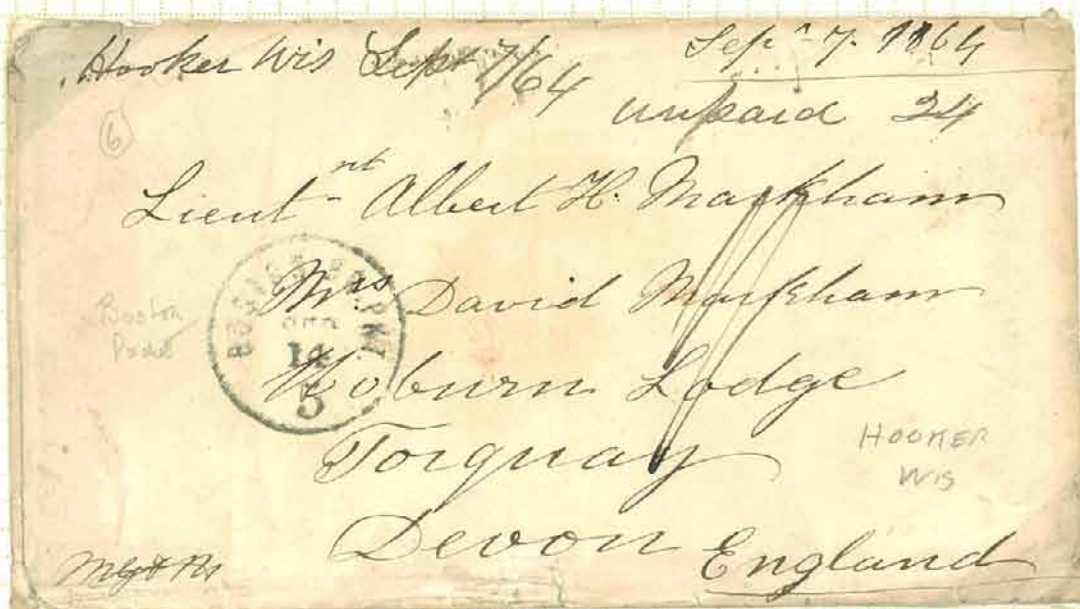 Hooker Wis Sept 7/64
Sep^r 7. 1864
unpaid 24
6
Lieut^nt Albert H. Markham
Mrs David Markham
Woburn Lodge
Torquay
Devon England
Boston
BOSTON BR. PKT
SEP
14
5
HOOKER
WIS